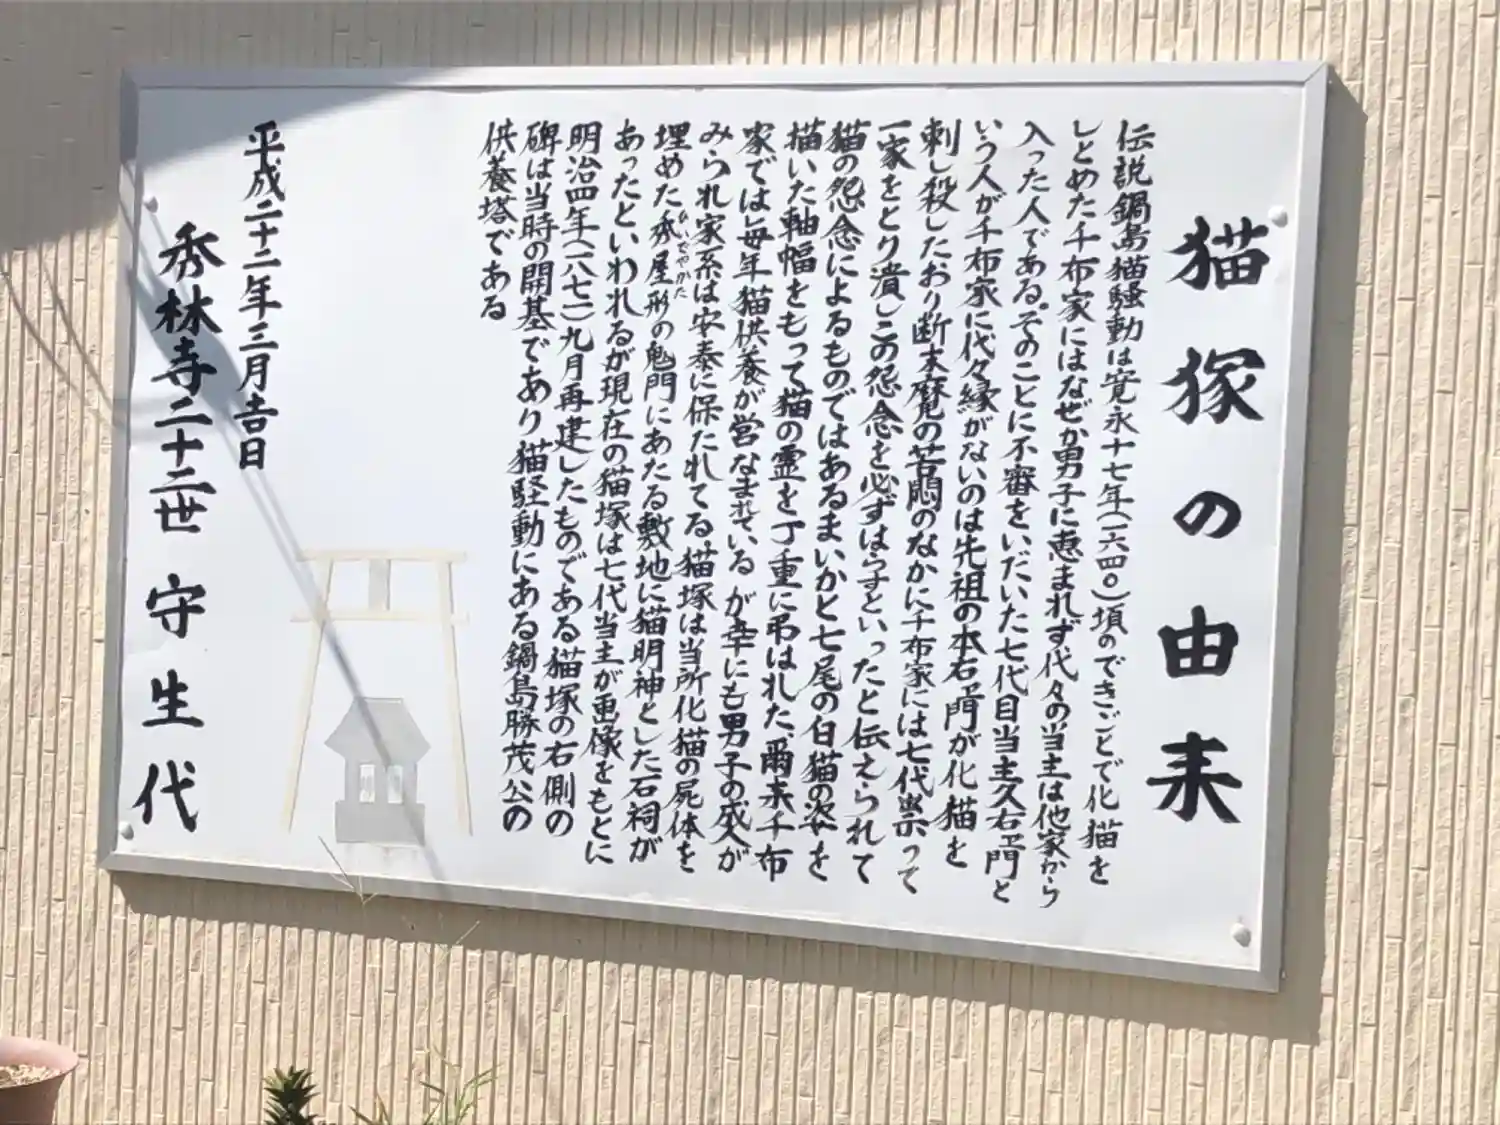 猫塚の由来
伝説鍋島猫騒動は寛永十七年(一六四〇)項のできごとで化猫を
しとめた千布家にはなぜか男子に恵まれず代々の当主は他家から
入った人である。そのことに不審をいだいた七代目当主久右ヱ門と
いう人が千布家に代々縁がないのは先祖の本右ヱ門が化猫を
刺し殺したおり断末魔の苦悶のなかに千布家には七代祟って
一家をとり潰しこの怨念を必ずはらすといったと伝えられて
猫の怨念によるものではあるまいかと七尾の白猫の姿を
描いた軸幅をもって猫の霊を丁重に弔はれた、爾来千布
家では毎年猫供養が営なまれている が幸にも男子の成人が
みられ家系は安泰に保たれてる。猫塚は当所化猫の屍体を
埋めた秀屋形の鬼門にあたる敷地に猫明神とした石祠が
ひいでやかた
あったといわれるが現在の猫塚は七代当主が画像をもとに
明治四年(一八七一)九月再建したものである猫塚の右側の
碑は当時の開基であり猫騒動にある鍋島勝茂公の
供養塔である
平成二十二年三月吉日
秀林寺二十二世 守生代